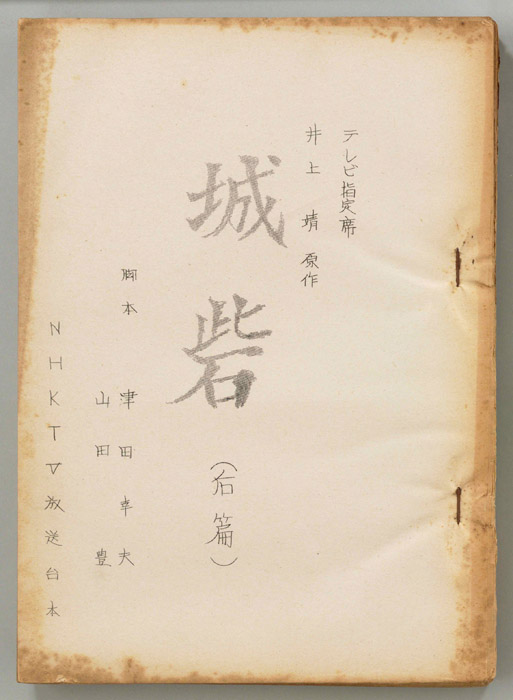 テレビ指定席
井上 靖 原作
城砦
（后篇）
脚本 津田幸夫
山田 豊
NHKTV放送台本